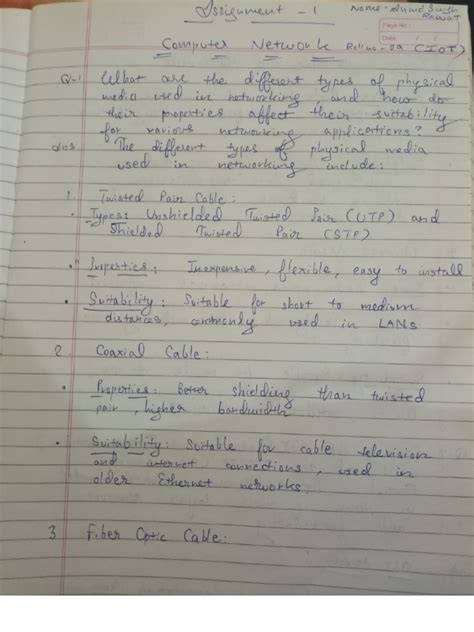 Assignment - 1
Name - Sumit Singh Rawat
Page No.:
Date: / /
Computer Network Roll no - 09 (IOT)
Q-1 What are the different types of physical
media used in networking, and how do
their properties affect their suitability
for various networking applications?
Ans The different types of physical media
used in networking include:
1. Twisted Pair Cable:
• Types: Unshielded Twisted Pair (UTP) and
Shielded Twisted Pair (STP)
• Properties: Inexpensive, flexible, easy to install
• Suitability: Suitable for short to medium
distances, commonly used in LANs
2. Coaxial Cable:
• Properties: Better shielding than twisted
pair, higher bandwidth
• Suitability: Suitable for cable television
and internet connections, used in
older Ethernet networks.
3 Fiber Optic Cable: